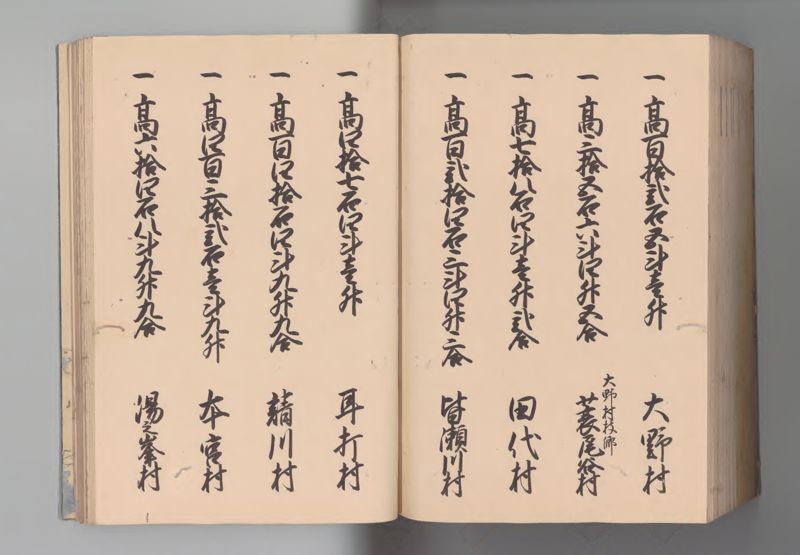 一 高百拾弐石五斗壱升 大野村
大野村枝郷
一 高三拾五石六斗四升五合 簑尾谷村
一 高七拾八石四斗壱升弐合 田代村
一 高百弐拾四石三斗四升三合 皆瀬川村
一 高四拾七石四斗壱升 耳打村
一 高百四拾石四斗九升九合 𩵋川村
一 高四百三拾弐石壱斗九升 本宮村
一 高六拾四石八斗九升九合 湯之峯村